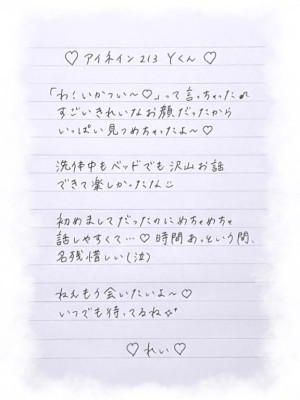 ♡ アイネイン 213 Yくん ♡
「わ！いかつい〜♡」って言っちゃった
すごいきれいなお顔だったから
いっぱい見つめちゃったよ〜♡
洗体中もベッドでも沢山お話
できて楽しかったな
初めましてだったのにめちゃめちゃ
話しやすくて…♡ 時間あっという間、
名残惜しい(泣)
ねえもう会いたいよ〜♡
いつでも待ってるね
♡ れい ♡